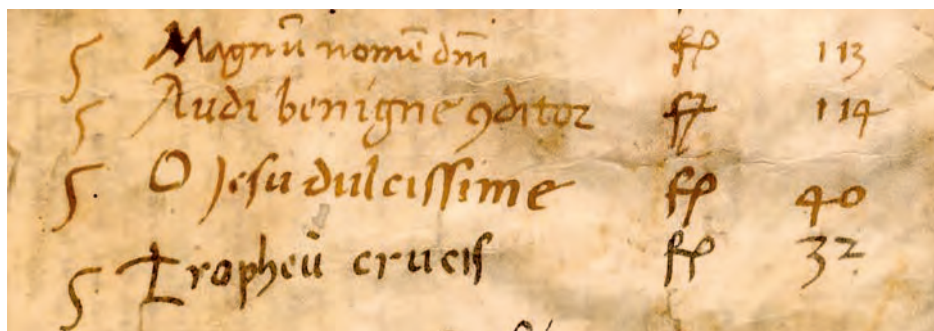 § Magnū nomē dn̄i ff 113
§ Audi benigne ꝯditor ff 114
§. O Jesu dulcissime ff 40
§ Tropheū crucis ff 32